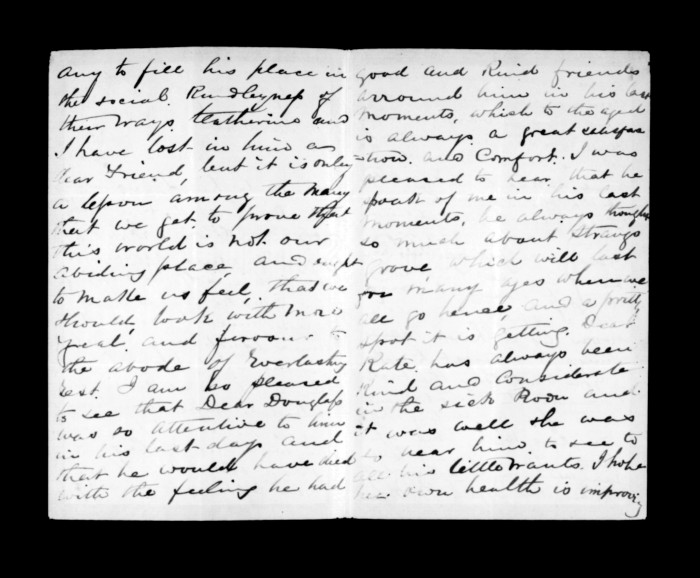 any to fill his place in
the social Kindlyness of
their ways. Catherine and
I have lost in him a
dear Friend, but it is only
a lesson among the many
that we get to prove that
this world is not our
abiding place, and ought
to make us feel that we
should look with more
great and to
the abode of Everlasting
rest. I am so pleased
to see that Dear Douglas
was so attentive to him
in his last days and
that he would have died
with the feeling he had
good and Kind friends
arround him in his last
moments, which to the aged
is always a great satisfac
-tion and Comfort. I was
pleased to hear that he
spoke of me in his last
moments, he always thought
so much about
Grove which will last
for many ages when we
all go hence, and a pretty
spot it is getting. Dear
Kate has always been
Kind and Considerate
in the sick Room and
it was well she was
to near him to see to
all his little wants. I hope
her own health is improving